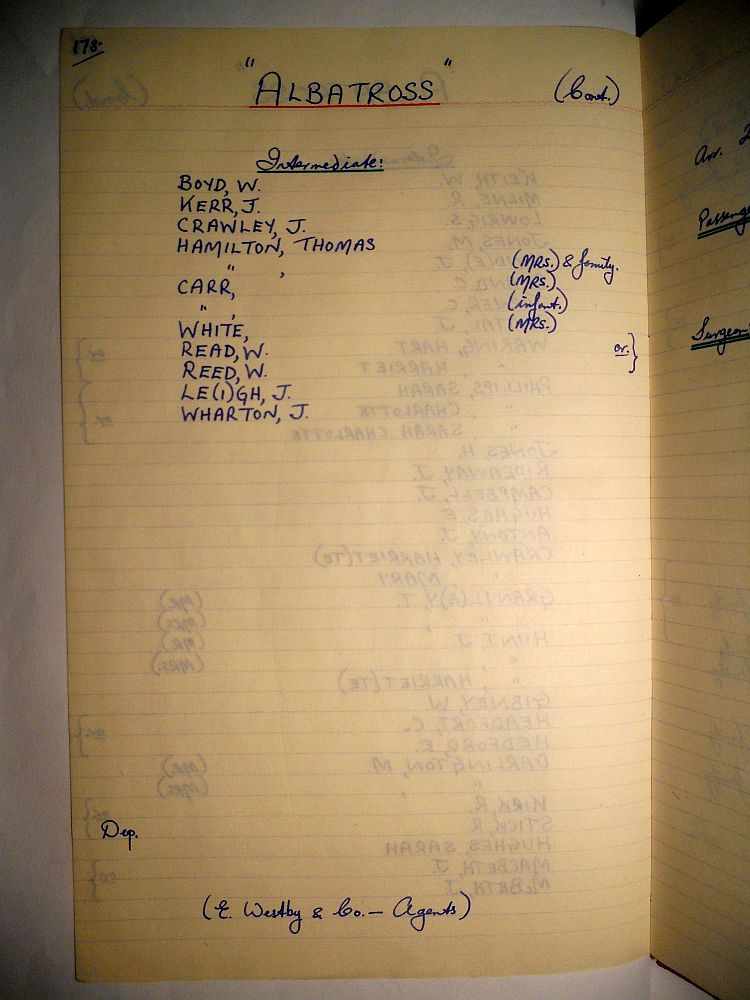 178.
"ALBATROSS" (Cont.)
Intermediate:
BOYD, W.
KERR, J.
CRAWLEY, J.
HAMILTON, THOMAS
" , (MRS.) & family.
CARR, (MRS.)
" , (infant.)
WHITE, (MRS.)
READ, W. or }
REED, W.
LE(I)GH, J.
WHARTON, J.
Dep.
(E. Westby & Co. — Agents)
Arr. 2
Passeng
Surgeon: